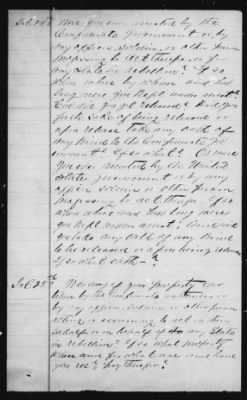 Int. 27th Were you ever arrested by the
Confederate Government or by
any officer, soldier or other person
professing to act therefor, or for
any State in rebellion? If so
when where by whom and how
long were you kept under arrest?
How did you get released? Did you
for the sake of being released or
upon release take any oath of
any kind to the Confederate Gov
ernment? If so what? Or were
you ever arrested by the United
States government or by any
officer soldier or other person
professing to act therefor. If so
when where and how long were
you kept under arrest, and did
you take any oath of any kind
to be released or upon being released
If so what oath?
Int. 28th Was any of your property ever
taken by the Confederate authorities or
by any officer, soldier or other person
acting or assuming to act in their
behalf or in behalf of any State
in rebellion? If so what property
when and for what use and have
you recd pay therefor?